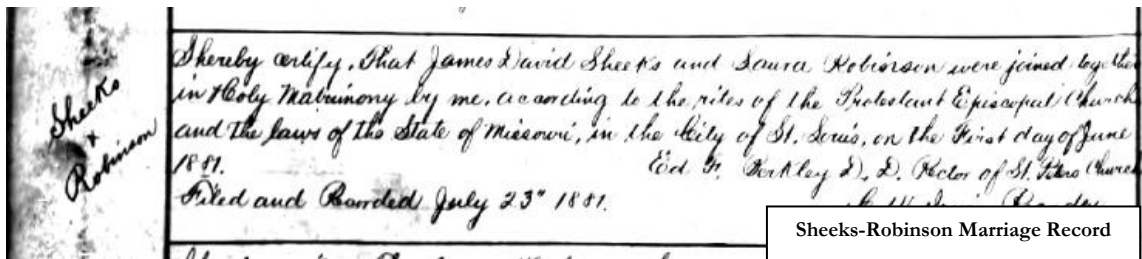 Sheeks
&
Robinson
I hereby certify, That James David Sheeks and Laura Robinson were joined together
in Holy Matrimony by me, according to the rites of the Protestant Episcopal Church
and the laws of the State of Missouri, in the City of St. Louis, on the First day of June
1881. Ed. F. Berkley D. D. Rector of St. Peters Church
Filed and Recorded July 23" 1881.
Sheeks-Robinson Marriage Record